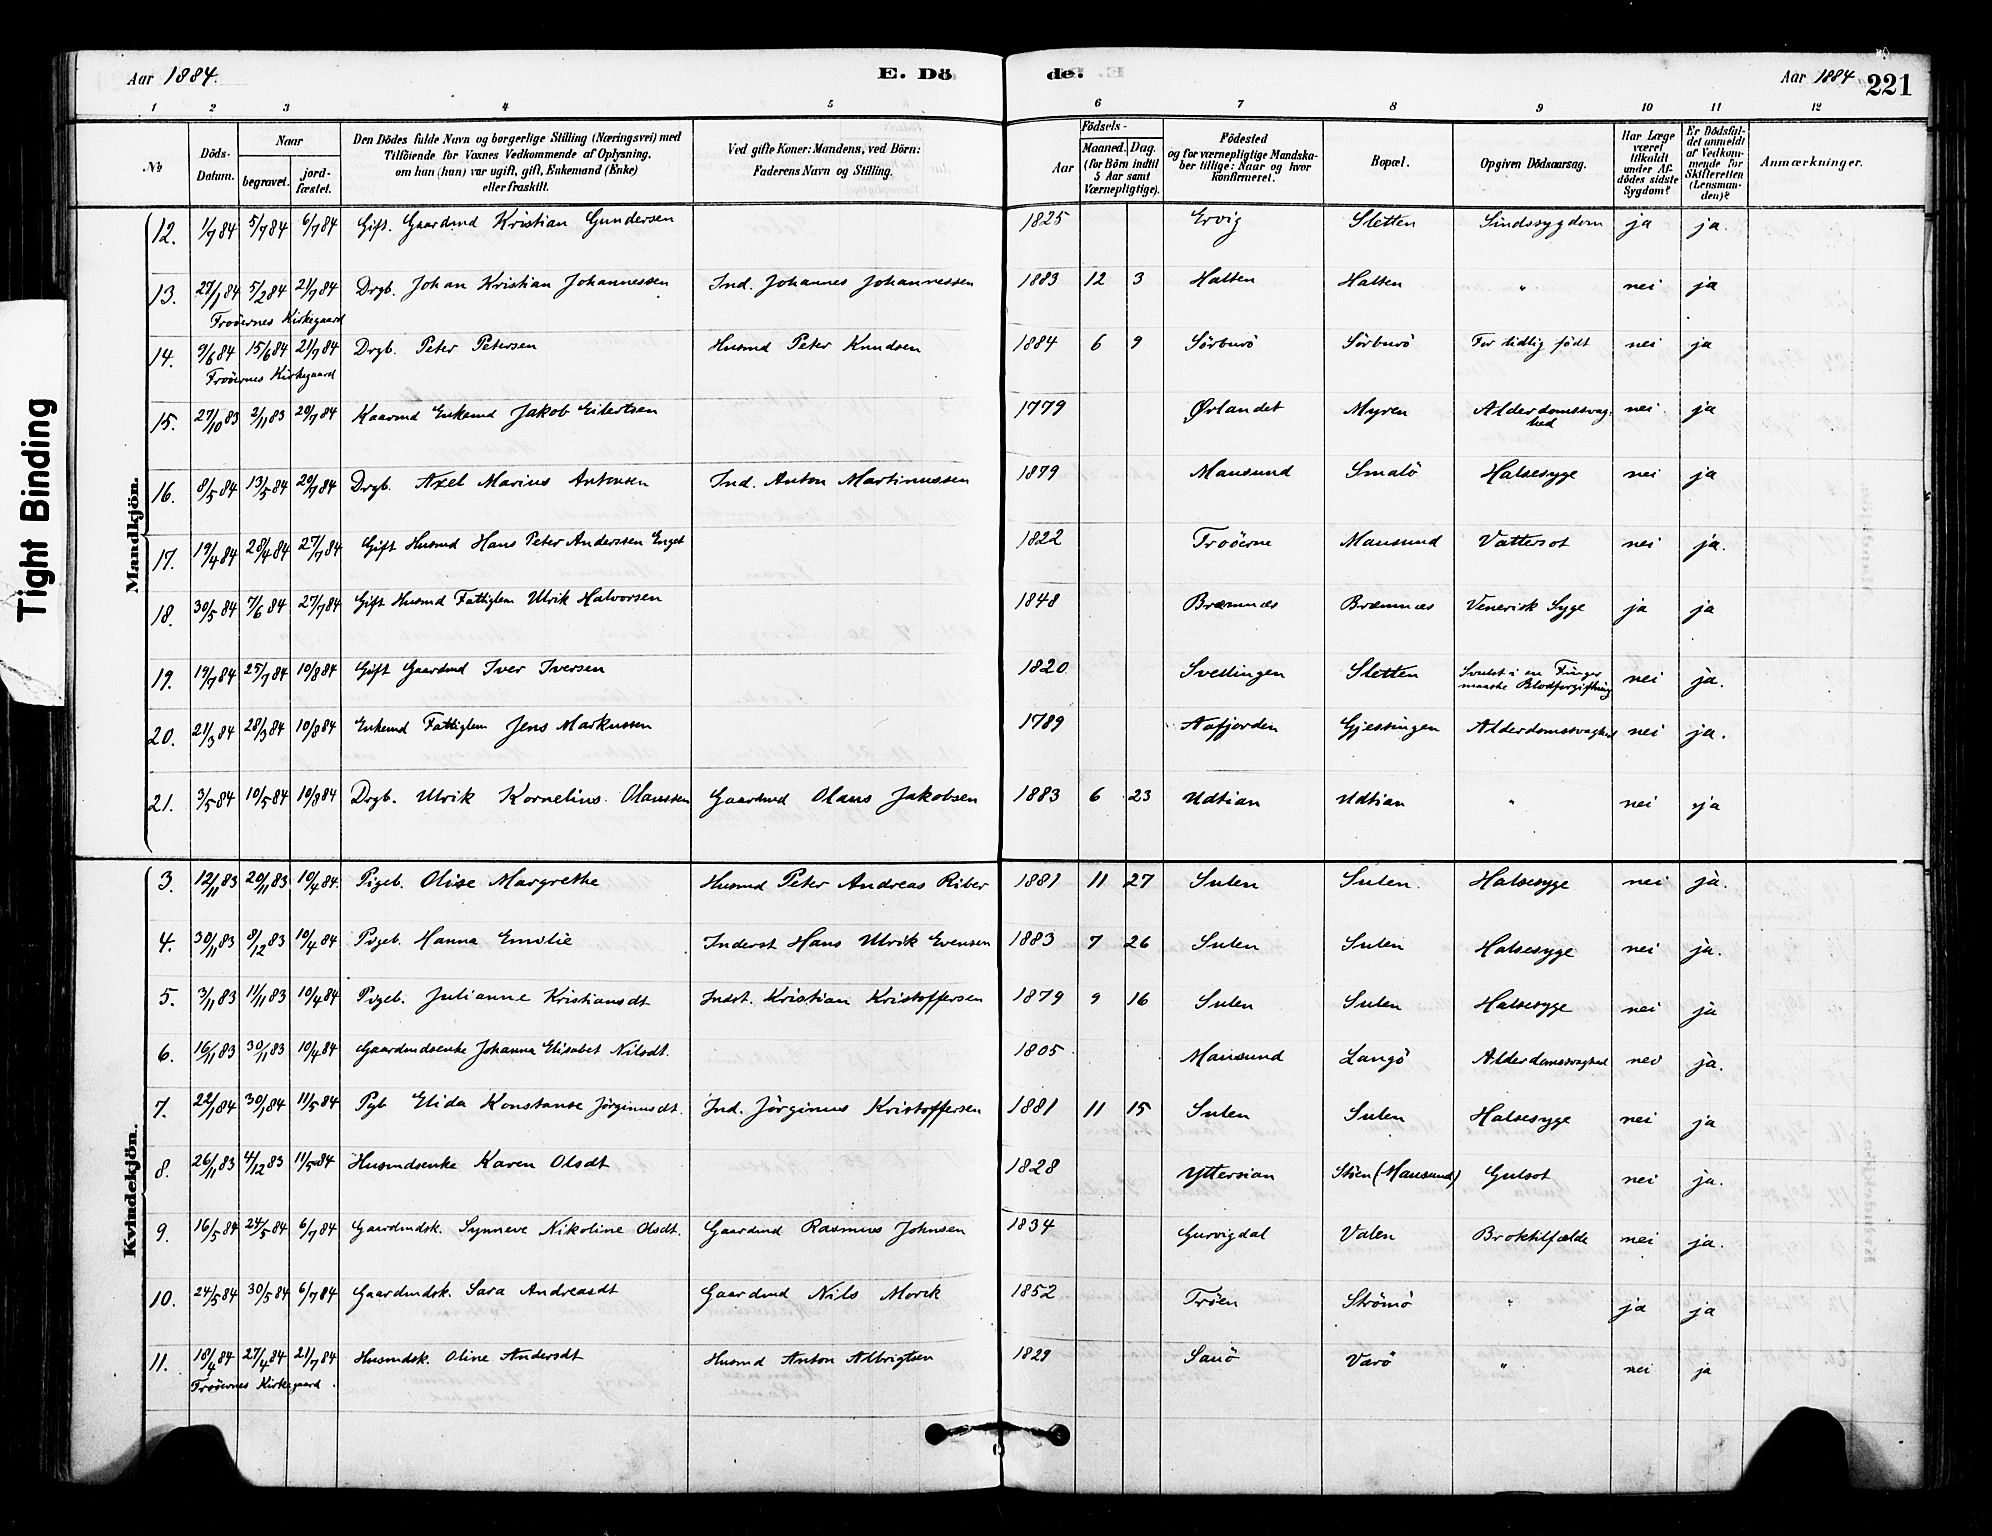 Tight Binding
Aar 1884.
E. Dö
de.
Aar 1884
221
1 2 3 4 5 6 7 8 9 10 11 12
№
Döds-Datum.
Naar
begravet.
jord-fæstet.
Den Dödes fulde Navn og borgerlige Stilling (Næringsvei) med
Tilföiende for Voxnes Vedkommende af Oplysning,
om han (hun) var ugift, gift, Enkemand (Enke)
eller fraskilt.
Ved gifte Koner: Mandens, ved Börn:
Faderens Navn og Stilling.
Födsels-
Aar
Maaned. Dag.
(for Börn indtil
5 Aar samt
Værnepligtige).
Födested
og for værnepligtige Mandska-
ber tillige: Naar og hvor
konfirmeret.
Bopæl.
Opgiven Dödsaarsag.
Har Læge
været
tilkaldt
under Af-
dödes sidste
Sygdom?
Er Dödsfal-
det anmeldt
af Vedkom-
mende for
Skifteretten
(Lensman-
den)?
Anmærkninger.
Mandkjön.
12. 1/7 84 5/7 84 6/7 84 Gift. Gaardmd Kristian Gundersen 1825 Ervig Sletten Sindssygdom ja ja.
13. 27/1 84 5/2 84 21/7 84 Drgb. Johan Kristian Johannessen Ind. Johannes Johannessen 1883 12 3 Halten Halten " nei ja
Froöernes Kirkegaard
14. 9/6 84 15/6 84 21/7 84 Drgb. Peter Petersen Husmd Peter Knudsen 1884 6 9 Sörburö Sörburö For tidlig födt nei ja
Froöernes Kirkegaard
15. 27/10 83 2/11 83 20/7 84 Kaarmd Enkemd Jakob Eilertsen 1779 Ørlandet Myren Alderdomssvag- nei ja
hed
16. 8/5 84 13/5 84 20/7 84 Drgb. Axel Marius Antonsen Ind. Anton Martinussen 1879 Mausund Smalö Halsesyge nei ja
17. 19/4 84 28/4 84 27/7 84 Gift Husmd Hans Peter Anderssen Enget 1822 Froöerne Mausund Vattersot nei ja.
18. 30/5 84 7/6 84 27/7 84 Gift Husmd Fattiglem Ulrik Halvorsen 1848 Bræmnæs Bræmnæs Venerisk Syge ja ja
19. 19/7 84 25/7 84 10/8 84 Gift Gaardmd Iver Iversen 1820 Svellingen Sletten Svulst i en Finger nei ja.
maaske Blodforgiftning
20. 21/3 84 28/3 84 10/8 84 Enkemd Fattiglem Jens Markussen 1789 Aafjorden Gjessingen Alderdomssvaghed nei ja.
21. 3/5 84 10/5 84 10/8 84 Drgb. Ulrik Kornelius Olaussen Gaardmd Olaus Jakobsen 1883 6 23 Udtian Udtian " nei ja
Kvindekjön.
3. 12/11 83 20/11 83 10/4 84. Pigeb. Olise Margrethe Husmd Peter Andreas Riber 1881 11 27 Sulen Sulen. Halsesyge nei ja.
4. 30/11 83 8/12 83 10/4 84 Pigeb. Hanna Emilie Inderst Hans Ulrik Evensen 1883 7 26 Sulen Sulen Halsesyge nei ja.
5. 3/11 83 11/11 83 10/4 84 Pigeb. Julianne Kristiansdt Indst. Kristian Kristoffersen 1879 9 16 Sulen Sulen Halsesyge nei ja
6. 16/11 83 30/11 83 10/4 84 Gaardmdsenke Johanna Elisabet Nilsdt. 1805 Mausund Langö Alderdomssvaghed nei ja.
7. 22/1 84 30/1 84 11/5 84 Pgb Elida Konstanse Jörginusdt. Ind. Jörginus Kristoffersen 1881 11 15 Sulen Sulen Halsesyge nei ja
8. 26/11 83 4/12 83 11/5 84 Husmdsenke Karen Olsdt 1828 Yttersian Stöen (Mausund) Gulsot nei ja.
9. 16/5 84 24/5 84 6/7 84 Gaardmdsk. Synneve Nikoline Olsdt. Gaardmd Rasmus Johnsen 1834 Gurvigdal Valen Broktilfælde nei ja.
10. 24/5 84 30/5 84 6/7 84 Gaardmdsk. Sara Andreasdt Gaardmd Nils Morik 1852 Fröen Strömö " ja ja
11. 18/4 84 27/4 84 21/7 84 Husmdsk. Oline Andersdt Husmd Anton Albrigtsen 1829 Sauö Varö " nei ja
Froöernes Kirkegaard.